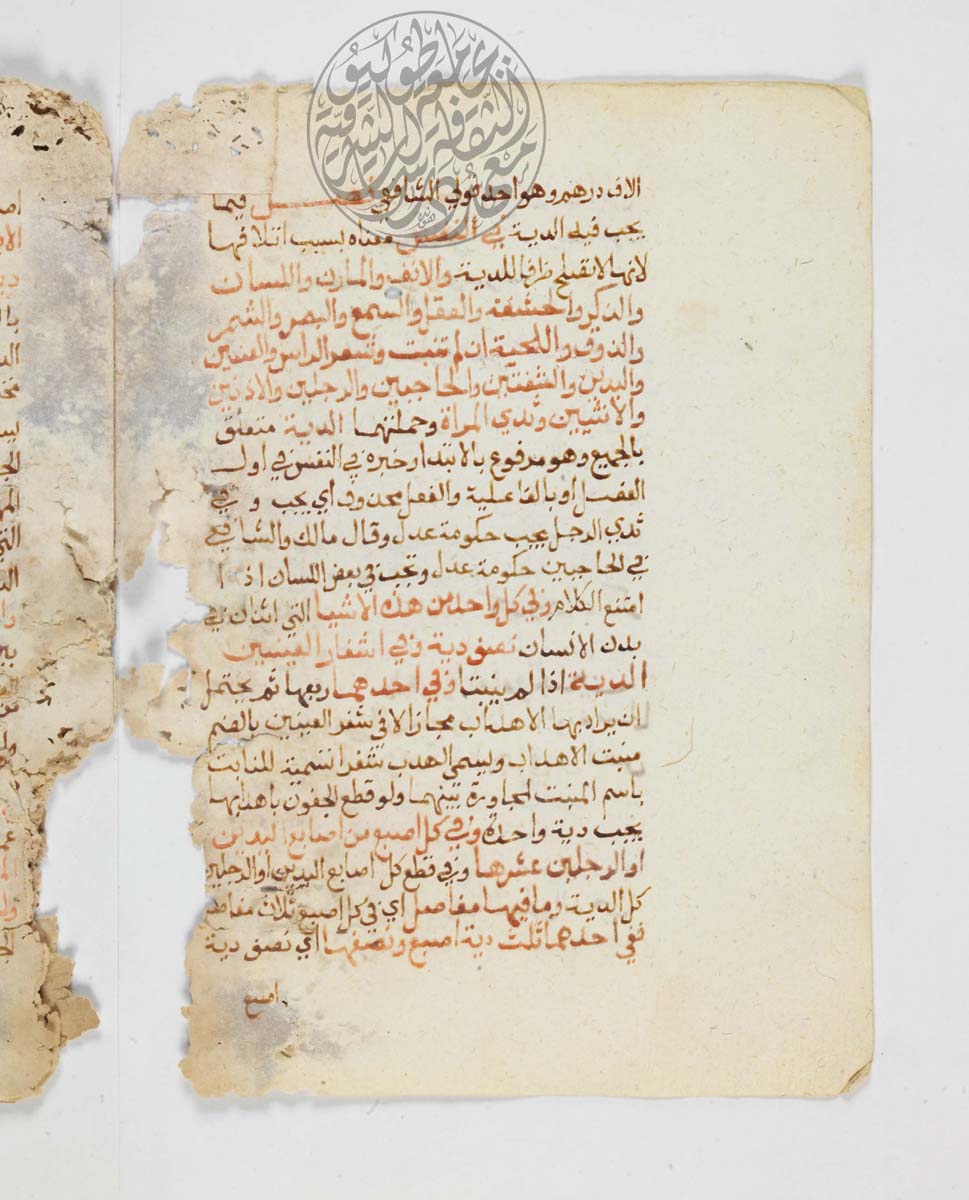 الاف درهم وهو احد قولي الشافعي فصل فيما
يجب فيه الدية في النفس معناه بسبب اتلافها
لانها لا تصلح ظرفا للدية والانف والمارن واللسان
والذكر والحشفة والعقل والسمع والبصر والشم
والذوق واللحية ان لم تنبت وشعر الراس والعينين
واليدين والشفتين والحاجبين والرجلين والاذنين
والانثيين وثدي المراة وحملتهما الدية متعلق
بالجميع وهو مرفوع بالابتدا وخبره في النفس في اول
الفصل او بالفاعلية والفعل محذوف اي يجب وفي
ثدي الرجل يجب حكومة عدل وقال مالك والشافعي
في الحاجبين حكومة عدل وتجب في بعض اللسان اذا
امتنع الكلام وفي كل واحد من هذه الاشيا التي اثنان في
بدن الانسان نصف دية وفي اشفار العينين
الدية اذا لم ينبت وفي احدهما ربعها ثم يحتمل
ان يراد بها الاهداب مجازا لان شفر العينين بالضم
منبت الاهداب ويسمى الهدب شفرا تسمية للنابت
باسم المنبت لمجاورة بينهما ولو قطع الجفون باهدابها
يجب دية واحدة وفي كل اصبع من اصابع اليدين
او الرجلين عشرها وفي قطع كل اصابع اليدين او الرجلين
كل الدية وما فيها مفاصل اي في كل اصبع ثلاث مفاصل
ففي احدهما ثلث دية اصبع ونصفها اي نصف دية
اصبع